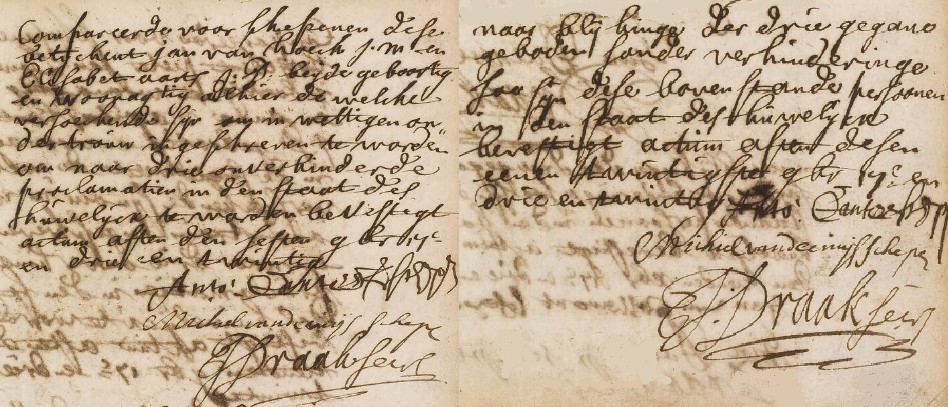 Compareerde voor schepenen dese
betekent Jan van j.m. en
Elisabet aarts j.D. beijde geboortig
en woonagtig alhier de welcke
versoekende sijn om in wettigen on
dertrouw ingeschreven te worden
om naar drie onverhinderde
proclamatien in den staat des
huwelijck te worden bevestigt
actum asten den sesten 9br 17c
en drie een twintig
Anto: Schepen
Michiel vander schepen
J: Draak Secrs
naar blijckinge der drie gegane
geboden sonder verhinderinge
soo sijn dese bovenstande persoonen
in den staat des huwelijcx
bevestigt actum asten desen
eenen twintigste 9br 17c en
drie en twintig Anto:
Michiel vander schepen
J: Draak Secrs